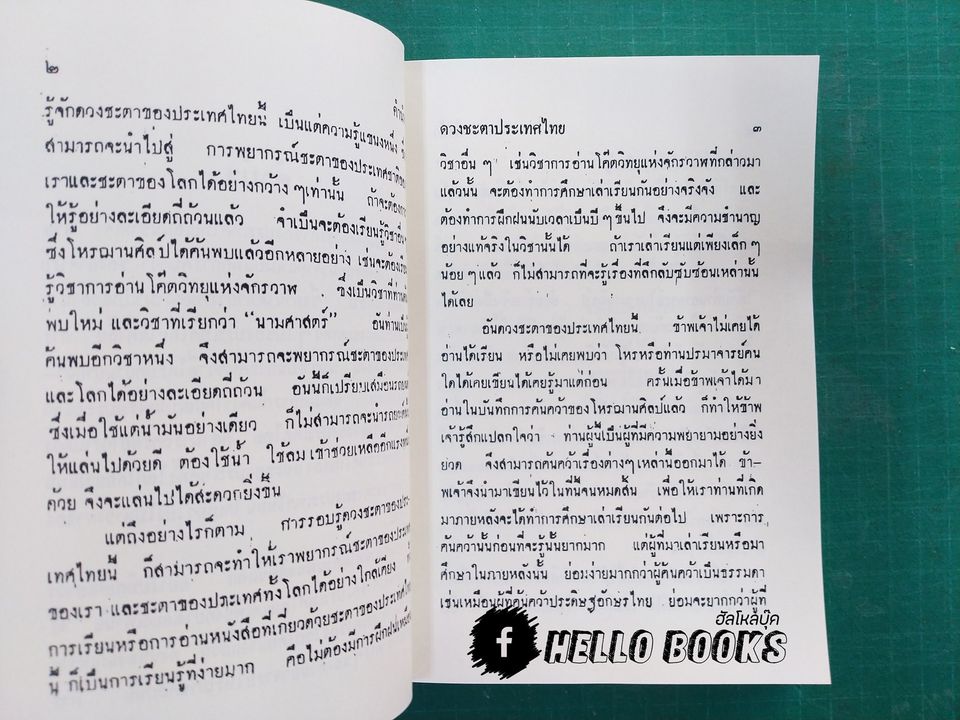 ๒
รู้จักดวงชะตาของประเทศไทยนี้ เป็นแต่ความรู้แขนงหนึ่ง
สามารถจะนำไปสู่ การพยากรณ์ชะตาของประเทศชาติของ
เราและชะตาของโลกได้อย่างกว้าง ๆเท่านั้น ถ้าจะต้องการ
ให้รู้อย่างละเอียดถี่ถ้วนแล้ว จำเป็นจะต้องเรียนรู้วิชาอื่น
ซึ่งโหรญานศิลป์ได้ค้นพบแล้วอีกหลายอย่าง เช่นจะต้องเรียน
รู้วิชาการอ่านโค๊ตวิทยุแห่งจักรวาฬ ซึ่งเป็นวิชาที่ท่าน
พบใหม่ และวิชาที่เรียกว่า “นามศาสตร์” อันท่านเป็นผู้
ค้นพบอีกวิชาหนึ่ง จึงสามารถจะพยากรณ์ชะตาของประเทศ
และโลกได้อย่างละเอียดถี่ถ้วน อันนี้ก็เปรียบเสมือนรถยนต์
ซึ่งเมื่อใช้แต่น้ำมันอย่างเดียว ก็ไม่สามารถจะนำรถยนต์
ให้แล่นไปด้วยดี ต้องใช้น้ำ ใช้ลม เข้าช่วยเหลืออีกแรงหนึ่ง
ด้วย จึงจะแล่นไปได้สะดวกยิ่งขึ้น
แต่ถึงอย่างไรก็ตาม การรอบรู้ดวงชะตาของประ-
เทศไทยนี้ ก็สามารถจะทำให้เราพยากรณ์ชะตาของประเทศ
ของเรา และชะตาของประเทศทั้งโลกได้อย่างใกล้เคียง
การเรียนหรือการอ่านหนังสือที่เกี่ยวด้วยชะตาของประเทศไทย
นี้ ก็เป็นการเรียนรู้ที่ง่ายมาก คือไม่ต้องมีการฝึกฝนเหมือน
ดวงชะตาประเทศไทย ๓
วิชาอื่น ๆ เช่นวิชาการอ่านโค๊ตวิทยุแห่งจักรวาฬที่กล่าวมา
แล้วนั้น จะต้องทำการศึกษาเล่าเรียนกันอย่างจริงจัง และ
ต้องทำการฝึกฝนนับเวลาเป็นปี ๆ ขึ้นไป จึงจะมีความชำนาญ
อย่างแท้จริงในวิชานั้นได้ ถ้าเราเล่าเรียนแต่เพียงเล็ก ๆ
น้อย ๆ แล้ว ก็ไม่สามารถที่จะรู้เรื่องที่ลึกลับซับซ้อนเหล่านั้น
ได้เลย
อันดวงชะตาของประเทศไทยนี้ ข้าพเจ้าไม่เคยได้
อ่านได้เรียน หรือไม่เคยพบว่า โหรหรือท่านปรมาจารย์คน
ใดได้เคยเขียนได้เคยรู้มาแต่ก่อน ครั้นเมื่อข้าพเจ้าได้มา
อ่านในบันทึกการค้นคว้าของโหรญานศิลป์แล้ว ก็ทำให้ข้าพ
เจ้ารู้สึกแปลกใจว่า ท่านผู้นี้เป็นผู้ที่มีความพยายามอย่างยิ่ง
ยวด จึงสามารถค้นคว้าเรื่องต่างๆ เหล่านี้ออกมาได้ ข้า-
พเจ้าจึงนำมาเขียนไว้ในที่นี้จนหมดสิ้น เพื่อให้เราท่านที่เกิด
มาภายหลังจะได้ทำการศึกษาเล่าเรียนกันต่อไป เพราะการ
ค้นคว้านั้นก่อนที่จะรู้นั้นยากมาก แต่ผู้ที่มาเล่าเรียนหรือมา
ศึกษาในภายหลังนั้น ย่อมง่ายมากกว่าผู้ค้นคว้าเป็นธรรมดา
เช่นเหมือนผู้ที่ค้นคว้าประดิษฐ์อักษรไทย ย่อมจะยากกว่าผู้ที่
ฮัลโหลบุ๊ค
f HELLO BOOKS